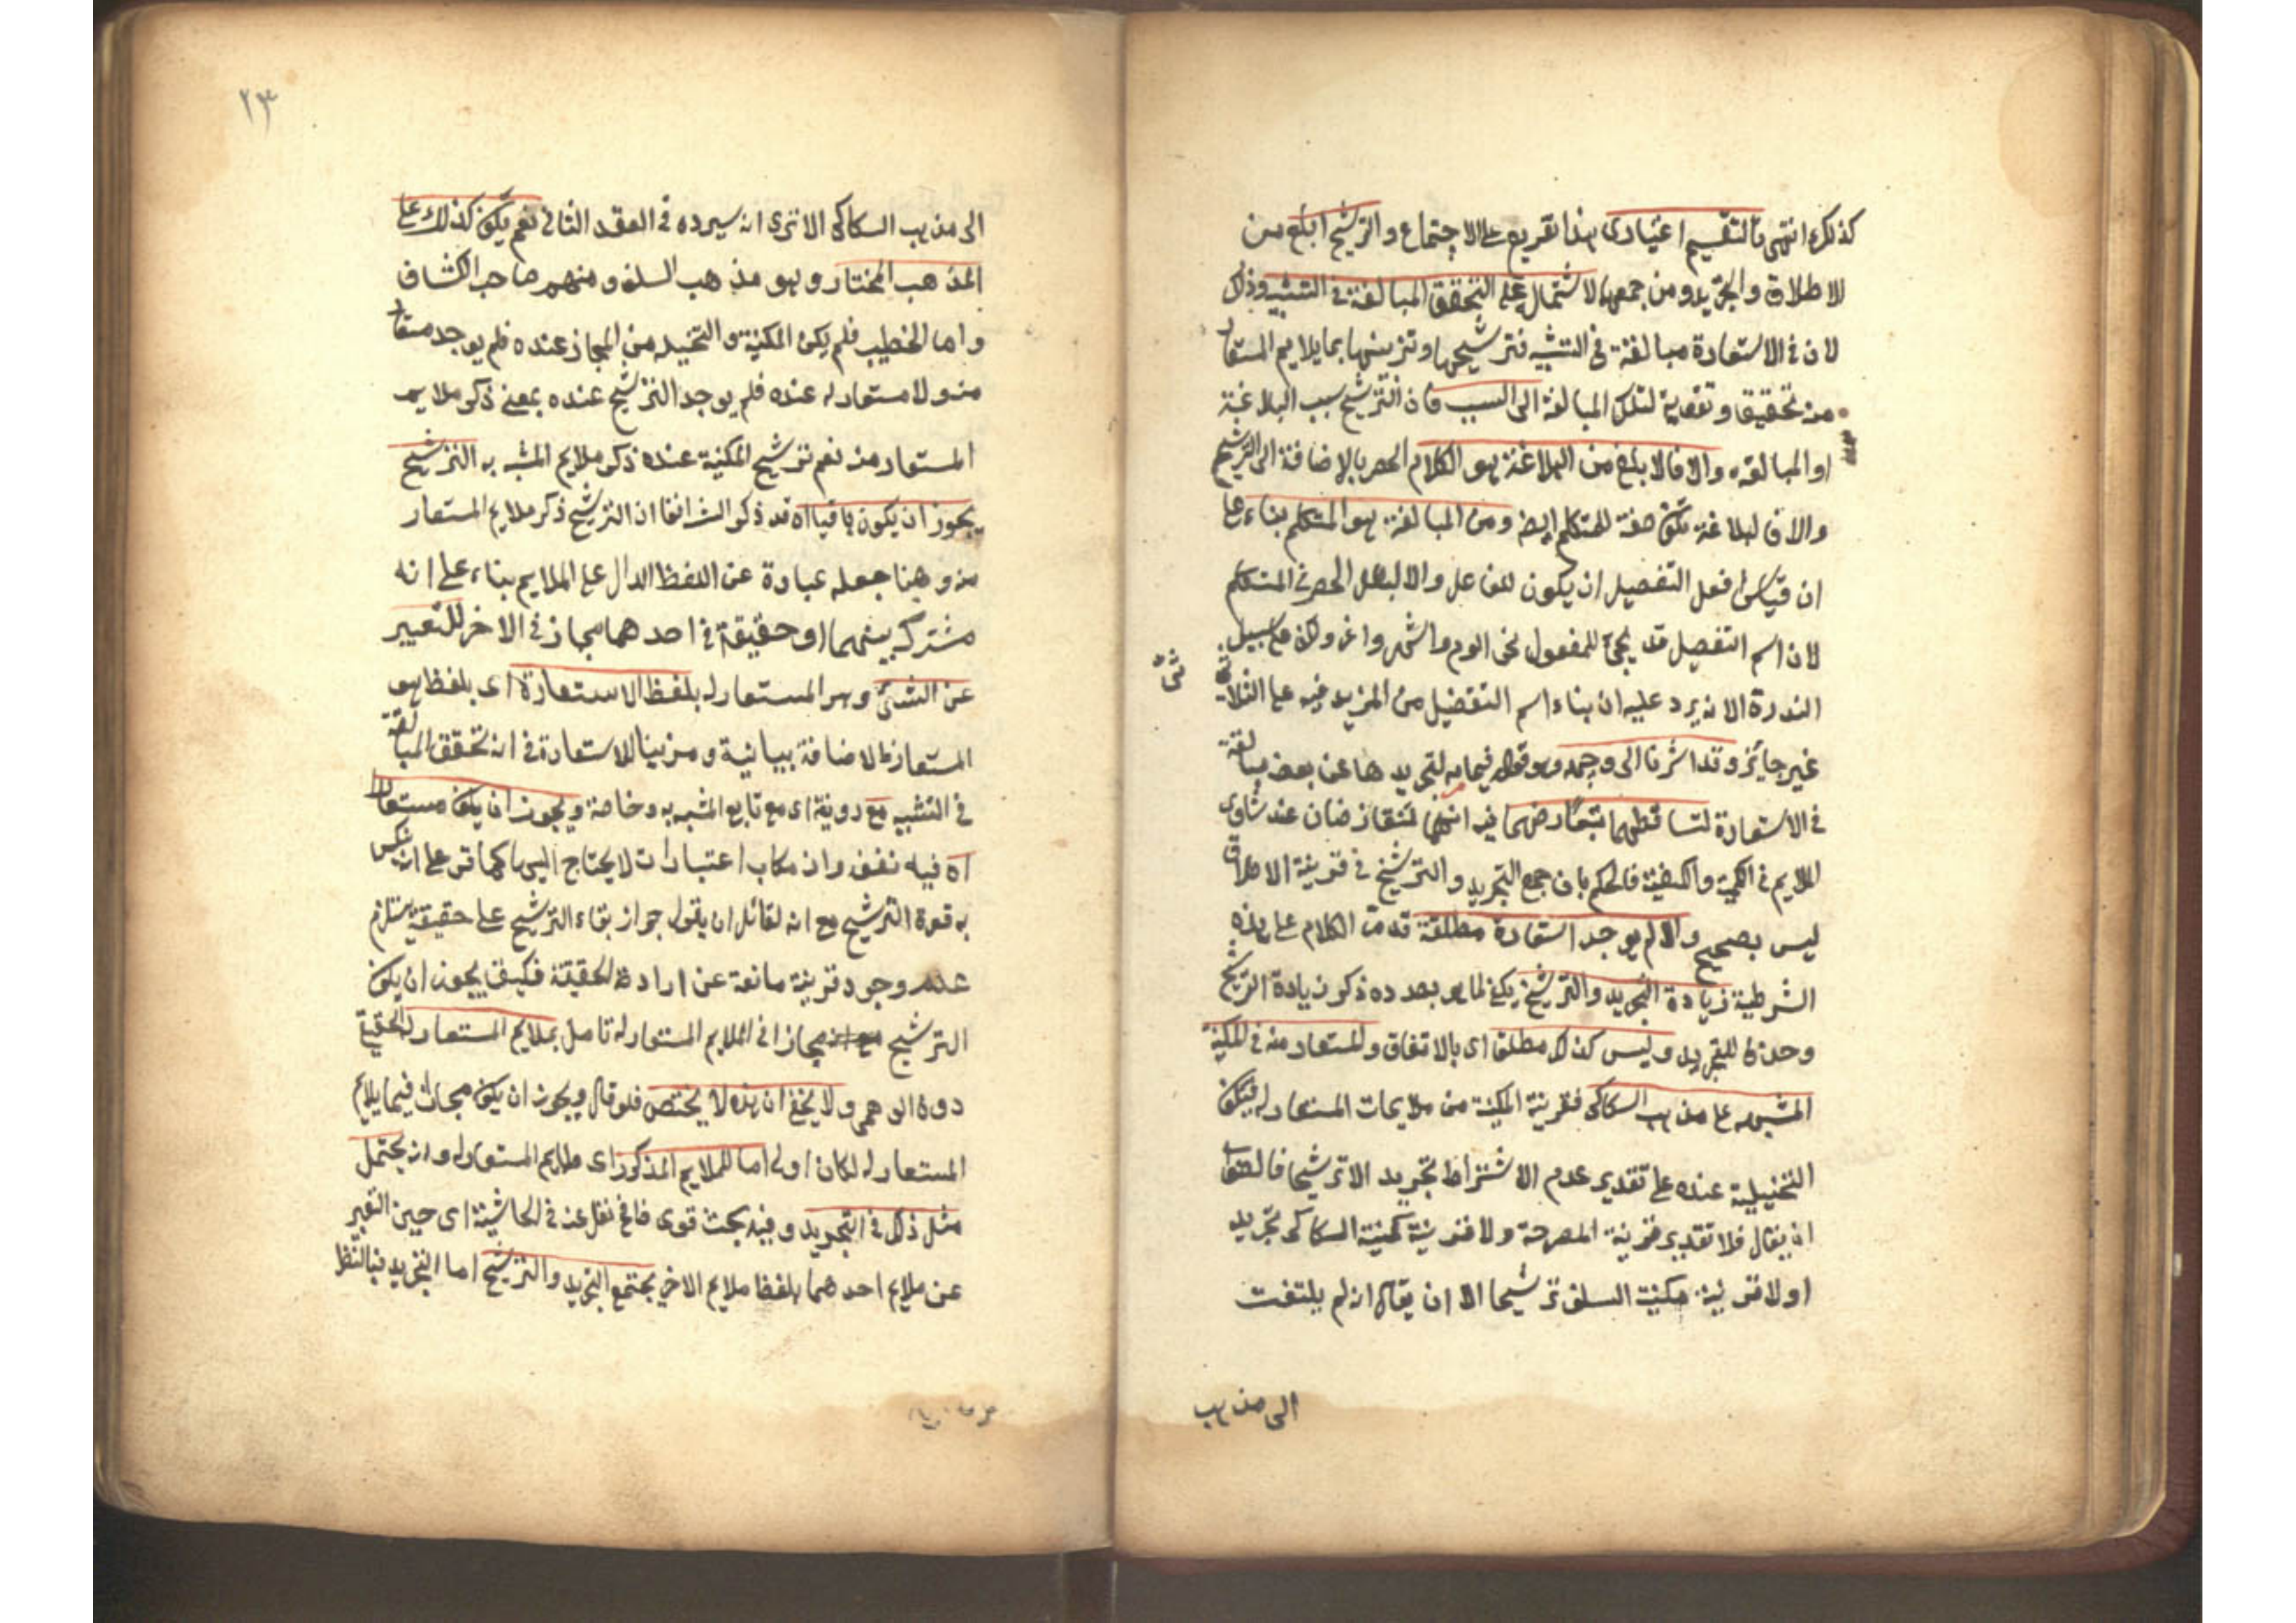 كذلك انتهى فالتقسيم اعتبارى هذا تفريع على الاجتماع والترشيح ابلغ من
الاطلاق والتجريد ومن جمعهما لاشتماله على التحقق المبالغة فى التشبيه وذلك
لان فى الاستعارة مبالغة فى التشبيه فترشيحها وتزيينها بما يلايم المستعار
منه تحقيق وتقوية لتلك المبالغة الى السبب فان الترشيح سبب البلاغة
او المبالغة والا فالابلغ من البلاغة هو الكلام الحصر بالاضافة الى الترشيح
والا فالبلاغة تكون صفة للمتكلم ايضا ومن المبالغة هو المتكلم بناء على
ان قياس افعل التفضيل ان يكون للفاعل والا لبطل الحصر فى المتكلم
لان اسم التفضيل قد يجئ للمفعول نحو الوم واشهر واعز ولان على سبيل
الندرة الا انه يرد عليه ان بناء اسم التفضيل من المزيد فيه على الثلاثى
غير جائز وقد اشرنا الى وجهه وهو قوله فيما مر لتجريدها عن بعض مبالغة
فى الاستعارة لتساقطهما بتعارضهما فيه انهما متعارضان عند تساوى
الملايم فى الكمية والكيفية فالحكم بان جمع التجريد والترشيح فى مرتبة الاطلاق
ليس بصحيح والا لم يوجد استعارة مطلقة قد مر الكلام على هذه
الشرطية زيادة التجريد والترشيح يكفى لما هو بصدده ذكر زيادة الترشيح
وحذف للتجريد وليس كذلك مطلقا اى بالاتفاق والمستعار منه فى المكنية
المشبه على مذهب السكاكى فقرينة المكنية من ملايمات المستعار له فيكون
التخييلية عنده على تقدير عدم الاشتراط تجريد الا ترشيحا فالصواب
ان يقال فلا تعد قرينة المصرحة ولا قرينة مكنية السكاكى تجريد
او لا قرينة مكنية السلف ترشيحا الا ان يقال انه لم يلتفت
الى مذهب
٢٣
الى مذهب السكاكى الا ترى انه سيرده فى العقد الثانى نعم يكون كذلك على
المذهب المختار وهو مذهب السلف ومنهم صاحب الكشاف
واما الخطيب فلم يكن المكنية والتخييلية من المجاز عنده فلم يوجد مستعار
منه ولا مستعار له عنده فلم يوجد الترشيح عنده بمعنى ذكر ملايم
المستعار منه نعم ترشيح المكنية عنده ذكر ملايم المشبه به الترشيح
يجوز ان يكون باقيا اه قد ذكر الش انفا ان الترشيح ذكر ملايم المستعار
منه وهنا جعله عبارة عن اللفظ الدال على الملايم بناء على انه
مشترك بينهما او حقيقة فى احدهما مجاز فى الاخر للتعبير
عن الشئ وهو المستعار له بلفظ الاستعارة اى بلفظ هو
المستعار فالاضافة بيانية ومزينا للاستعارة فى انه تحقق المبالغة
فى التشبيه مع دونه اى مع تابع المشبه به وخاصة ويجوز ان يكون مستعارا
اه فيه تعسف وارتكاب اعتبارات لا يحتاج اليها كما مر على ان
به قوة الترشيح مع انه لقائل ان يقول جواز بقاء الترشيح على حقيقة يستلزم
عدم وجود قرينة مانعة عن ارادة الحقيقة فكيف يجوز ان يكون
الترشيح مجازا فى الملايم المستعار له تامل بملايم المستعار له الحقيقة
دون الوهمى ولا يخفى ان هذه لا يختص فلو قال ويجوز ان يكون مجازا فيما يلايم
المستعار له لكان اولى اما للملايم المذكور اى ملايم المستعار له وانه يحتمل
مثل ذلك فى التجريد وفيه بحث قوى فافى نقل عنه فى الحاشية اى حين التعبير
عن ملايم احدهما بلفظ ملايم الاخر يجتمع التجريد والترشيح اما التجريد فبالنظر